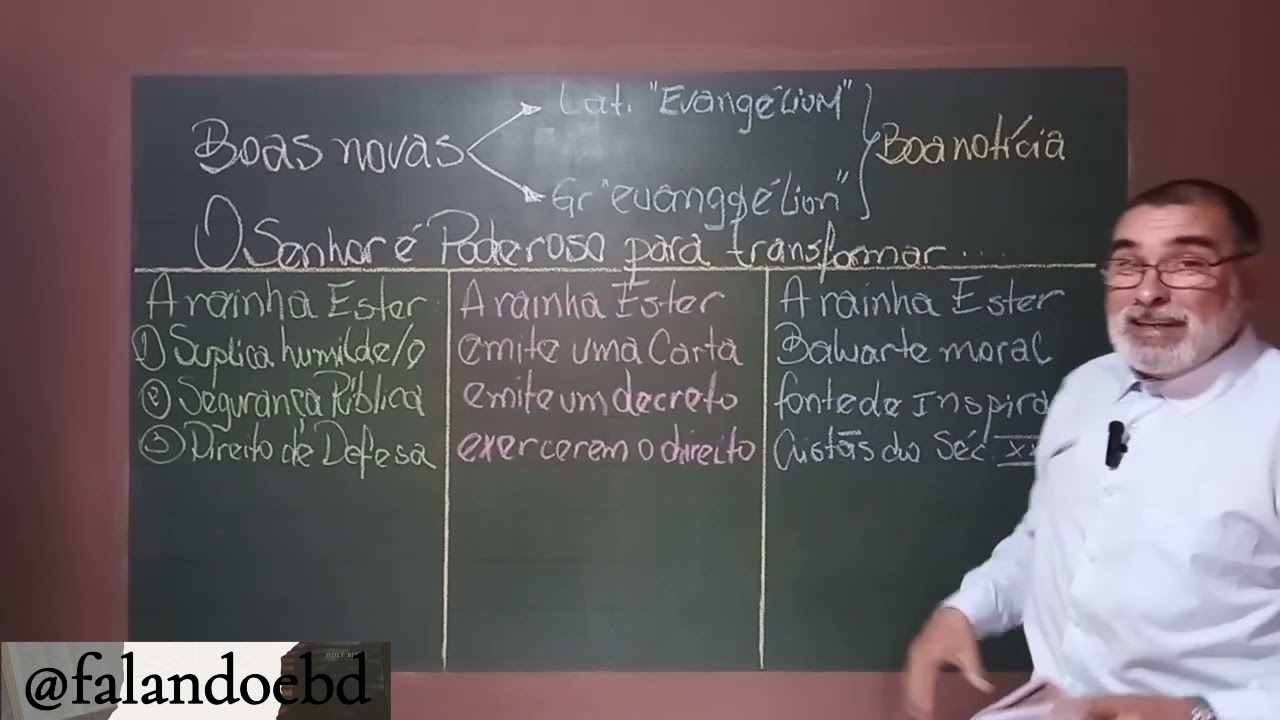 Boas novas
Lat. "EvangéLiuM"
Gr "evanggéLion"
Boa notícia
O Senhor é Poderoso para transformar ....
A rainha Ester
① Suplica humilde/e
② Segurança Pública
③ Direito de Defesa
A rainha Ester
emite uma Carta
emite um decreto
exercerem o direito
A rainha Ester
Baluarte moral
fonte de Inspira
Cristãs do Séc.
HOLY BIBLE
@falandoebd